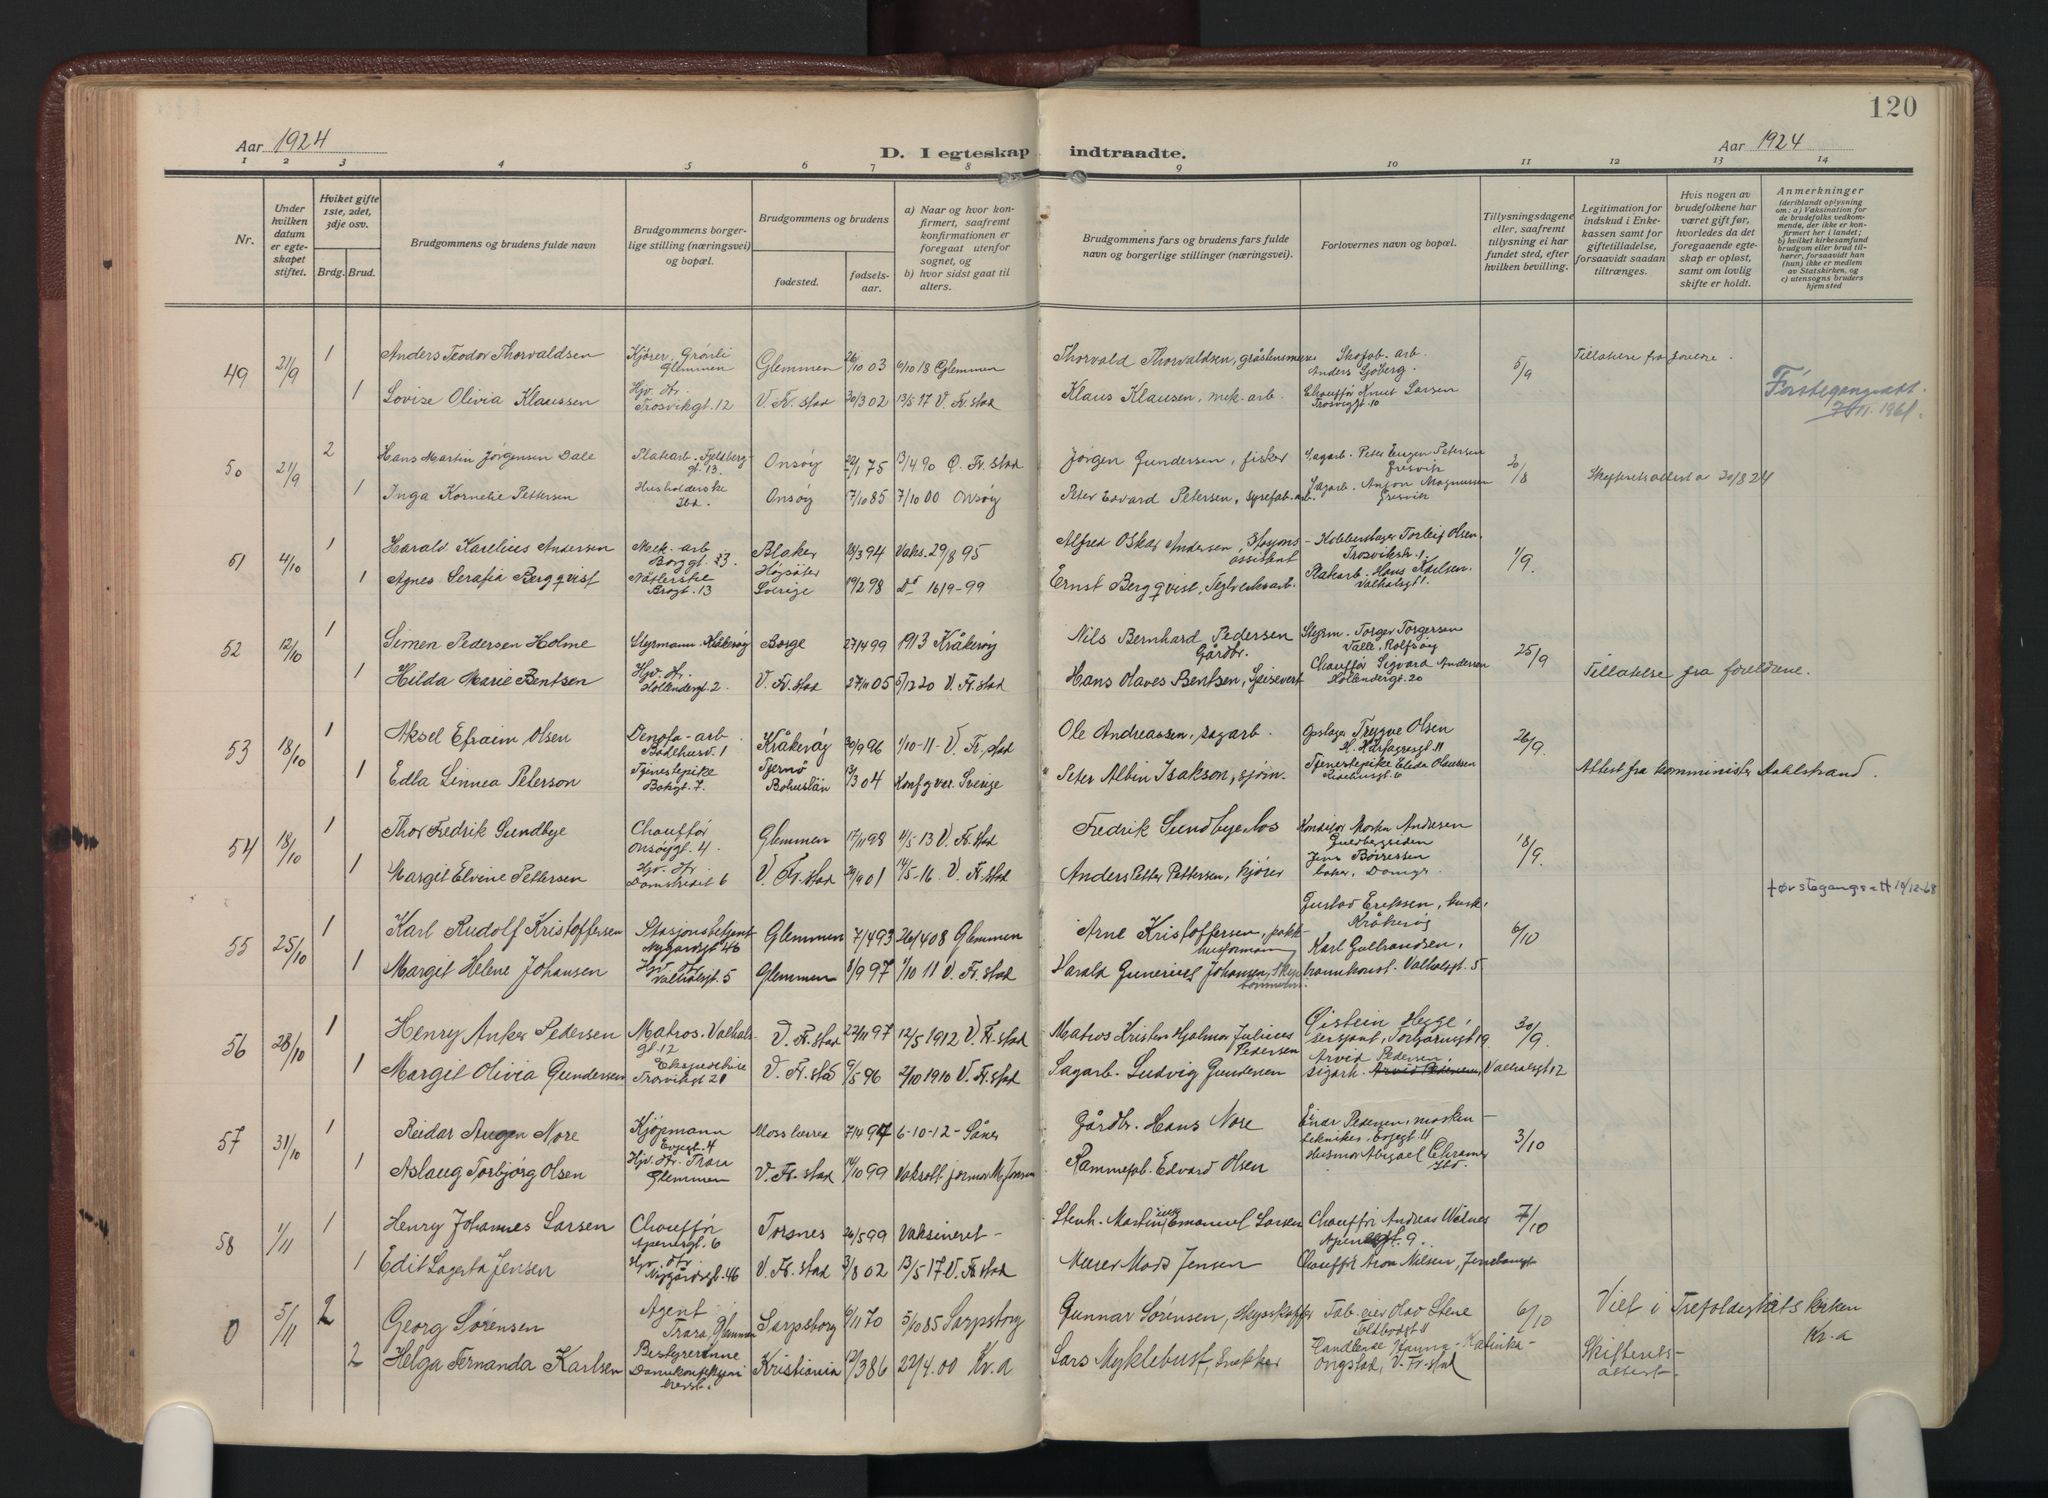 120
Aar 1924
D. I egteskap indtraadte.
Aar 1924
1 2 3 4 5 6 7 8 9 10 11 12 13 14
Nr.
Under hvilken datum er egteskapet stiftet.
Hviket gifte 1ste, 2det, 3dje osv.
Brdg. Brud.
Brudgommens og brudens fulde navn
Brudgommens borgerlige stilling (næringsvei) og bopæl.
Brudgommens og brudens
fødested.
fødselsaar.
a) Naar og hvor konfirmert, saafremt konfirmationen er foregaat utenfor sognet, og
b) hvor sidst gaat til alters.
Brudgommens fars og brudens fars fulde navn og borgerlige stillinger (næringsvei).
Forlovernes navn og bopæl.
Tillysningsdagene eller, saafremt tillysning ei har fundet sted, efter hvilken bevilling.
Legitimation for indskud i Enkekassen samt for giftetilladelse, forsaavidt saadan tiltrænges.
Hvis nogen av brudefolkene har været gift før, hvorledes da det foregaaende egteskap er opløst, samt om lovlig skifte er holdt.
Anmerkninger (deriblandt oplysning om: a) Vaksination for de brudefolks vedkommende, der ikke er konfirmert her i landet; b) hvilket kirkesamfund brudgom eller brud tilhører, forsaavidt han (hun) ikke er medlem av Statskirken, og c) utensogns bruders hjemsted
49 21/9 1 Anders Teodor Thorvaldsen Kjører, Grønli Glemmen Glemmen 26/10 03 6/10 18 Glemmen Thorvald Thorvaldsen, Skofab. arb. Anders Sjøberg. 5/9
1 Lovise Olivia Klaussen Hjv. Dtr. Trosvikgt. 12 V. Fr. stad 20/3 02 13/5 17 V. Fr. stad Klaus Klausen, mek. arb. Chauffør Knut Larsen Trosvikgt. 10
Førstegangsatt. 1961.
50 21/9 2 Hans Martin Jørgensen Dale Platarb. Fjeldberggt. 13. Onsøy 22/1 75 13/4 90 Ø. Fr. stad Jørgen Gundersen, fisker Sagarb. Peter Eugen Petersen Gresvik 20/8 Skifteretsattest a 20/8 24
1 Inga Kornelie Pettersen Husholderske Ibd. Onsøy 7/10 85 7/10 00 Onsøy Peter Edvard Petersen, syrefab. arb. Sagarb. Anton Magnussen Gresvik
51 4/10 1 Harald Karelius Andersen Mek. arb Borggt. 23. Blaker 18/3 94 Vaks. 29/8 95 Alfred Oskar Andersen, Stasjonsassistent Kobberslager Torleif Olsen. Trosvikstr. 1. 1/9.
1 Agnes Serafia Bergqvist Nåtlerske Brogt. 13 Høgsäter Sverige 19/2 98 Do 16/9-99 Ernst Bergqvist, Platarb. Hans Karlsen. Valhalsgt 1.
52 12/10 1 Simen Pedersen Holme Styrmann Kråkerøy Borge 27/4 99 1913 Kråkerøy Nils Bernhard Pedersen Gårdbr. Styrm. Torger Torgersen Valle, Rolfsøy 25/9
1 Hilda Marie Bentsen Hjv. Dtr. Hollendergt. 2. V. Fr. stad 27/11 05 5/12 20 V. Fr. stad Hans Olaves Bentsen, Spisevert Chauffør Sigvard Andersen Hollendergt. 20 Tillatelse fra foreldrene.
53 18/10 1 Aksel Efraim Olsen Denofa-arb. Badehusd. 1 Kråkerøy 30/9 96 1/10-11- V. Fr. stad Ole Andreassen, sagarb. Trygve Olsen H. Hårfagresgt 11 26/9.
1 Edla Linnea Peterson Tjenestepike Bakgt. 7. Tjernö Bohuslän 13/3 04 Sverige Peter Albin Isakson, sjöm. Tjenestepike Elida Olaussen Attest fra komminister Dahlstrand.
54 18/10 1 Thor Fredrik Sundbye Chauffør Onsøygt. 4. Glemmen 17/11 98 14/5-13 V. Fr. stad Fredrik Sundbye, los Konditor Morten Andresen Guldbergsiden 18/9.
1 Margit Elvine Pettersen Hjv. Dtr. Damstredet 6 V. Fr. stad 29/9 01 14/5-16. V. Fr. stad Anders Petter Pettersen, kjører Jens Børressen baker, Damgt.
førstegangsatt 10/12-68
55 25/10 1 Karl Rudolf Kristoffersen Stasjonsbetjent Nygårdsgt 46 Glemmen 7/4 93 26/4 08 Glemmen Arne Kristoffersen, pakkhusformann Gustav Eriksen, Kråkerøy 6/10
1 Margit Helene Johansen Hjv. Dtr. Valhalsgt. 5 Glemmen 8/9 97 1/10 11 V. Fr. stad Harald Gunerius Johansen, Karl Gulbrandsen, brannkonst. Valhalsgt. 5
56 28/10 1 Henry Anker Pedersen Matros. Valhalsgt. 12 V. Fr. stad 22/11 97 12/5 1912 V. Fr. stad Matros Kristen Hjalmar Julius Pedersen Øistein Hegge, sersjant, 30/9.
1 Margit Olivia Gundersen Ekspeditrise Trosvikgt 21 V. Fr. stad 6/5 96 2/10 1910 V. Fr. stad Sagarb. Ludvig Gundersen Arvid Pedersen, sigarh. Valhalsgt 12
57 31/10 1 Reidar Augen Nore Kjøpmann Evjegt. 4 7/4 94 6-10-12- Såner Gårdbr. Hans Nore Einar Pedersen, maskintekniker, Evjegt. 11 3/10
1 Aslaug Torbjørg Olsen Hjv. Dtr. Trara Glemmen V. Fr. stad 14/10 99 Edvard Olsen Husmor Abigael Ibd.
58 1/11 1 Henry Johannes Larsen Chauffør Apenesgt. 6 Torsnes 26/5 99 Vaksineret- Stenh. Martin Emanuel Larsen Chauffør Andreas Apenesgt. 9. 7/10
1 Edit Lagerta Jensen Hjv. Dtr. Nygårdsgt. 46 V. Fr. stad 3/8 02 13/5-17 V. Fr. stad Murer Mads Jensen Chauffør Aron Nilsen,
0 5/11 2 Georg Sørensen Agent Trara, Glemmen Sarpsborg 6/11 70 5/10 85 Sarpsborg Gunnar Sørensen, Skysskaffer Fab. eier Olav Stene Toldbodgt 11 6/10 Viet i Trefoldighetskirken Kr.a
2 Helga Fernanda Karlsen Bestyrerinne Kristiania 12/3 86 22/4.00 Kr.a Lars Myklebust, Snekker Handlende Hanna Katinka Ongstad, V. Fr. stad Skifteretsattest.